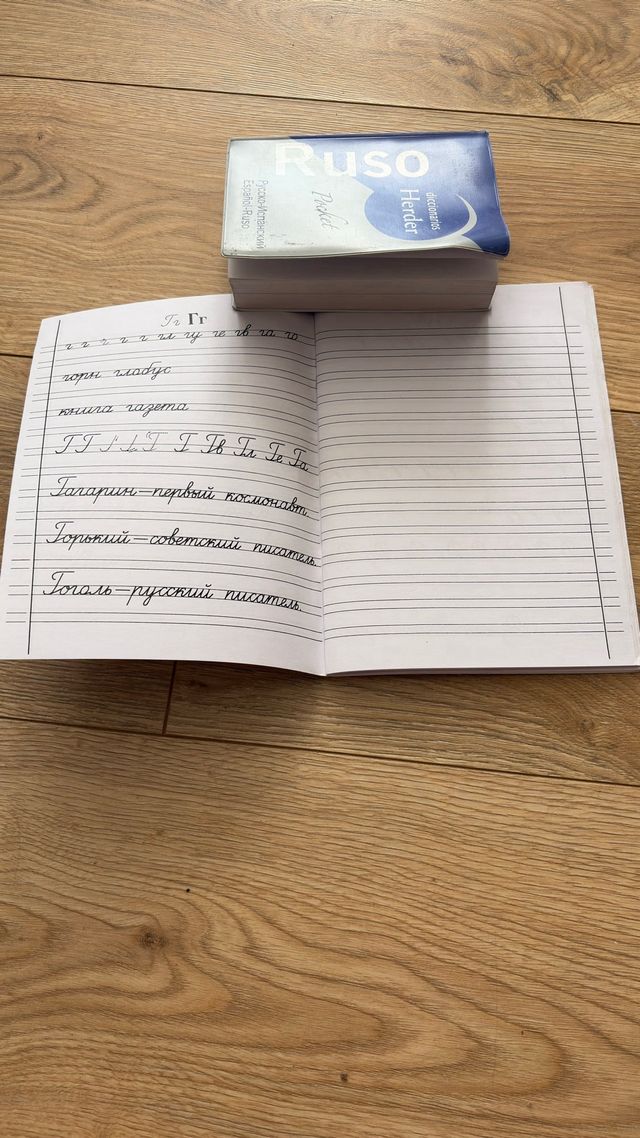 Ruso
diccionarios
Herder
Pocket
Русско-Испанский
Español-Ruso
Гг Гг
г г г г г гл гу ге гв га го
горн глобус
книга газета
Г Г Г Гв Гл Ге Га
Гагарин—первый космонавт.
Горький—советский писатель.
Гоголь—русский писатель.